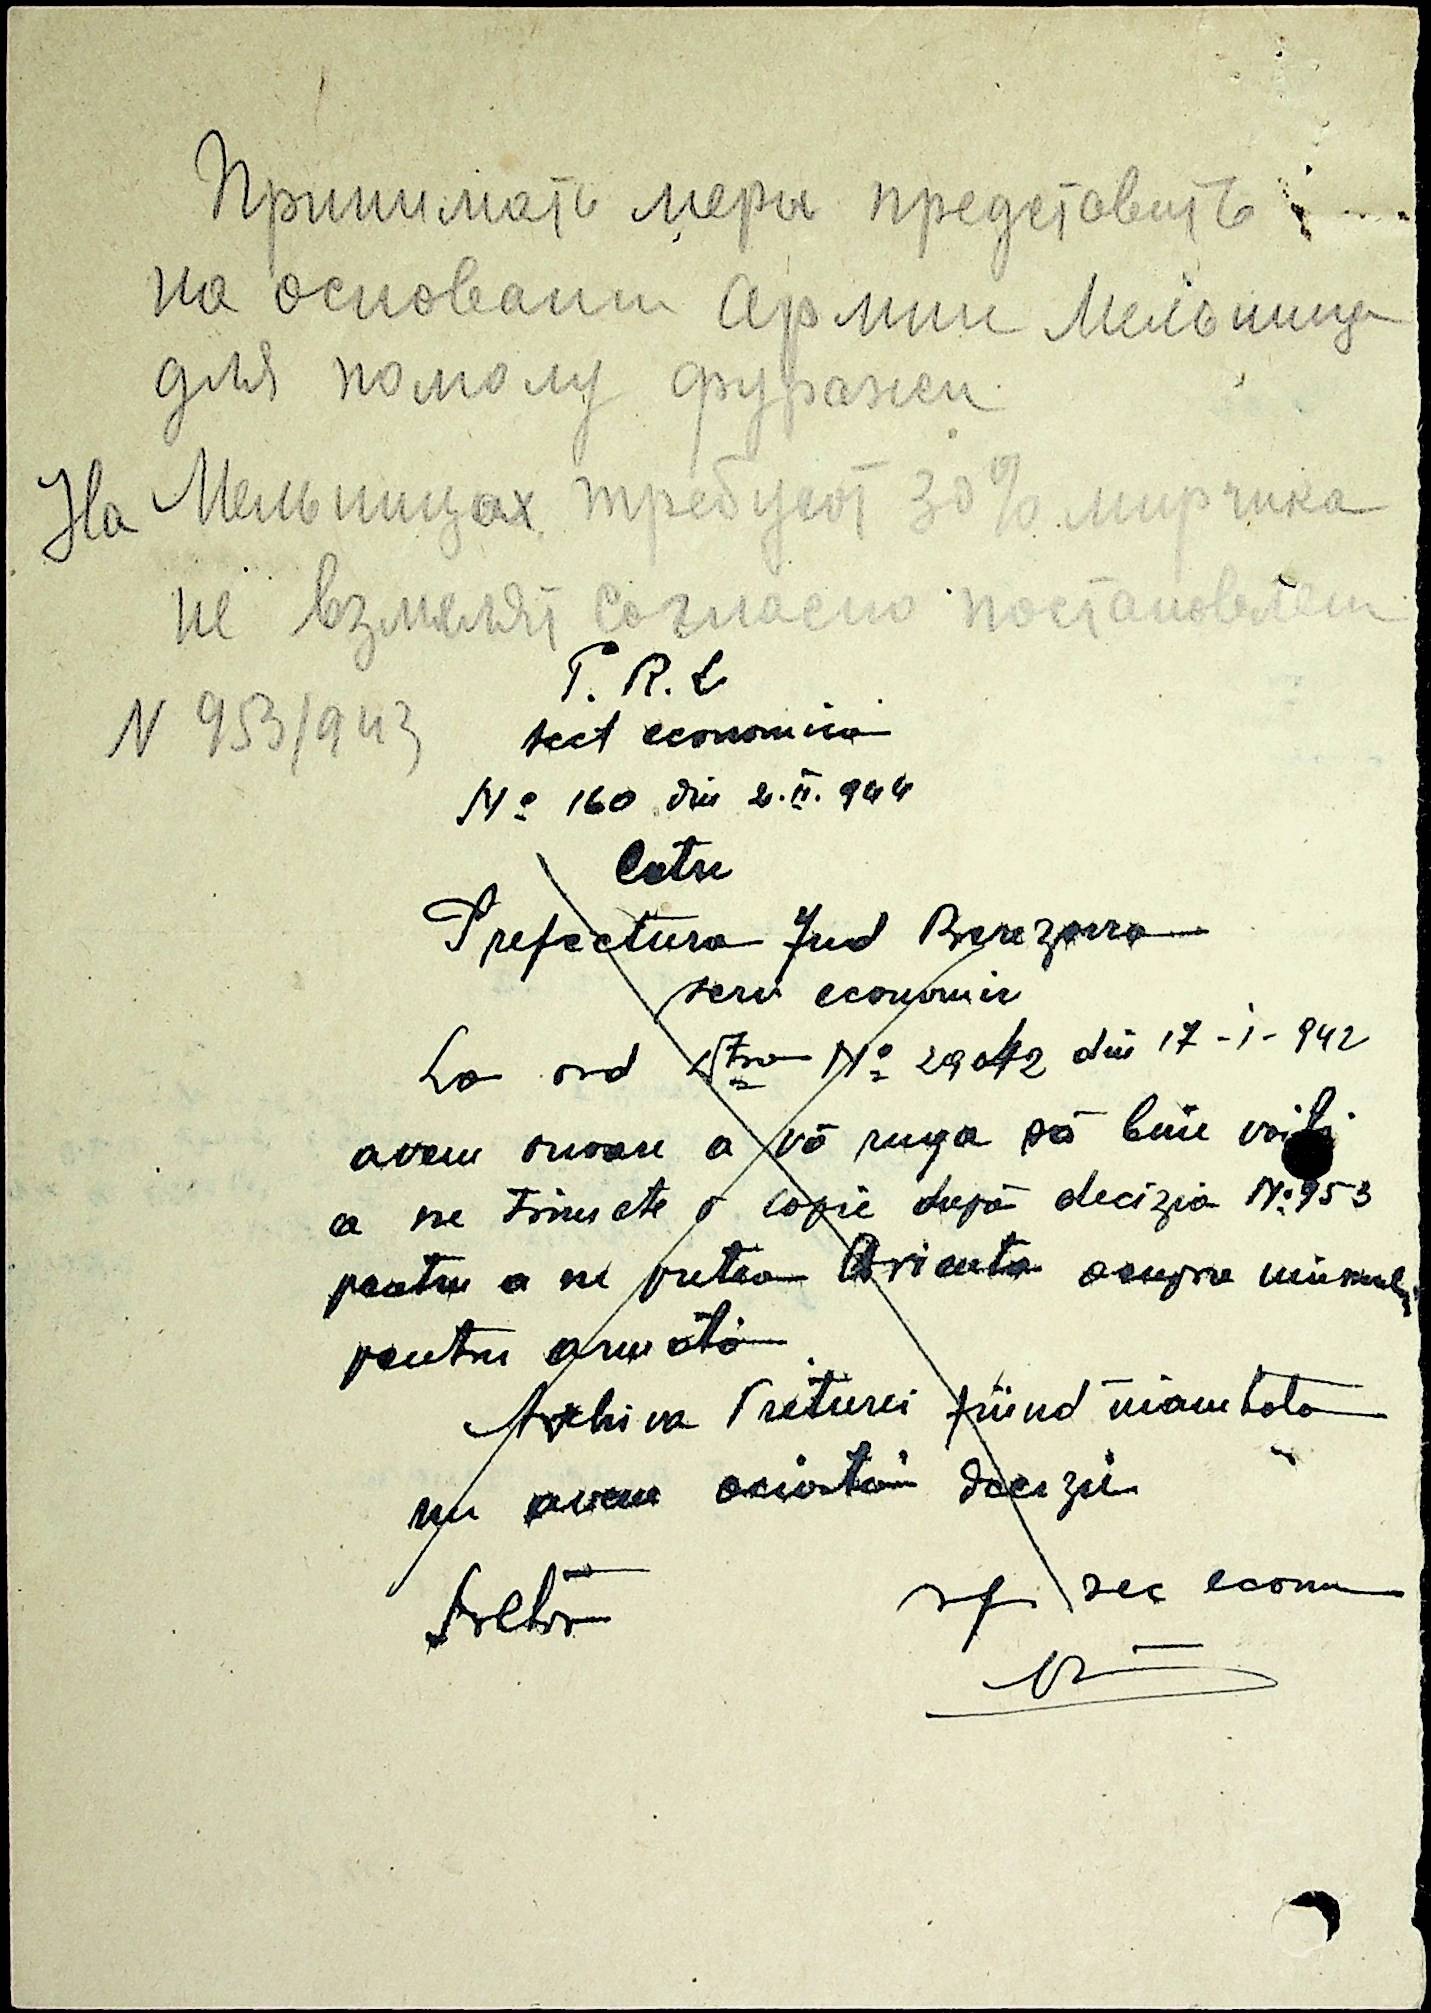 Принимать меры представить
на основании Армии Мельница
для помолу фуражен
На Мельницах требуют 30% мирчика
не взмелят согласно постановлен
N 953/943
P. R. L
sect economica
No 160 din 2.II.944
Catre
Prefectura Jud Berezovca
serv economic
La ord Dtra No 29042 din 17-I-942
avem onoare a vă ruga să bine voiti
a ne trimete o copie după decizia No 953
pentru a ne putea orienta asupra
pentru armată
Arhiva Preturei fiind
nu avem această decizie
Pretor
sf sec econom